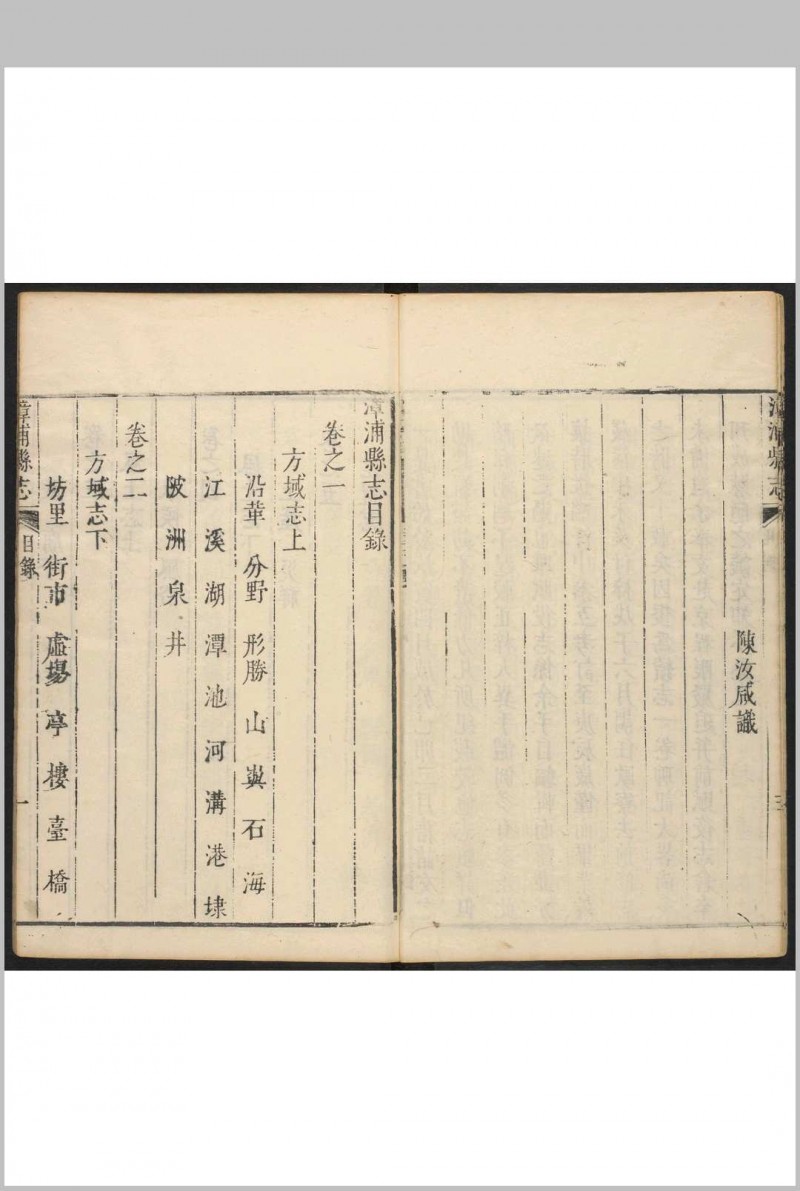 漳浦縣志
三
陳汝咸識
漳浦縣志目錄
卷之一
方域志上
沿革 分野 形勝 山 嶼 石 海
江 溪 湖 潭 池 河 溝 港 埭
陂 洲 泉 井
卷之二
方域志下
坊里 街市 虛場 亭 樓 臺 橋
漳浦縣志
目錄
一